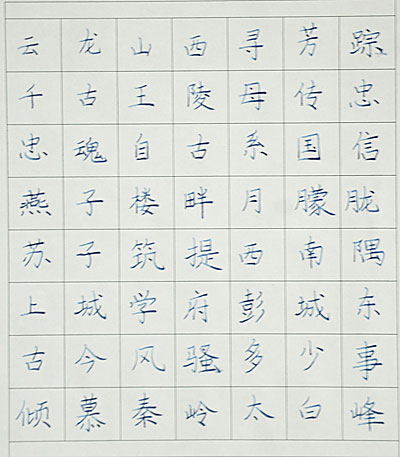 云龙山西寻芳踪
千古王陵母传忠
忠魂自古系国信
燕子楼畔月朦胧
苏子筑提西南隅
上城学府彭城东
古今风骚多少事
倾慕秦岭太白峰